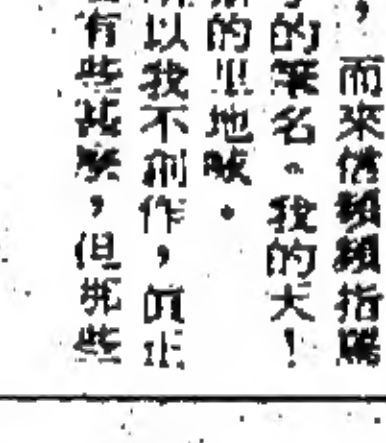 ，而來借頻頻指賜
的筆名。我的天！
的聖地呀。
以我不創作，真正
有些甚麼，但那些